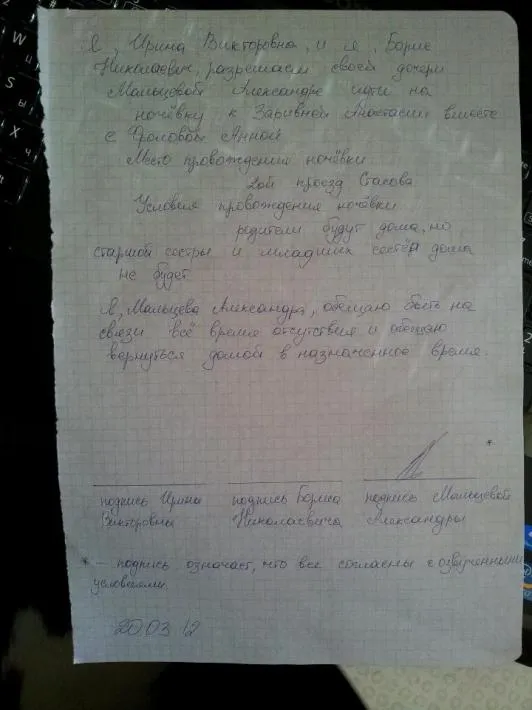 Я, Ирина Викторовна, и я, Борис
Николаевич, разрешаем своей дочери
Мальцевой Александре идти на
ночёвку к Заривной Анастасии вместе
с Фроловой Анной
Место провождения ночёвки
2ой проезд Стасова
Условия провождения ночёвки
родители будут дома, но
старшой сестры и младших сестёр дома
не будет
Я, Мальцева Александра, обещаю быть на
связи всё время отсутствия и обещаю
вернуться домой в назначенное время.
*
подпись Ирины подпись Бориса подпись Мальцевой
Викторовны Николаевича Александры
* – подпись означает, что все согласны с озвученными
условиями.
20.03 12
W
S
X